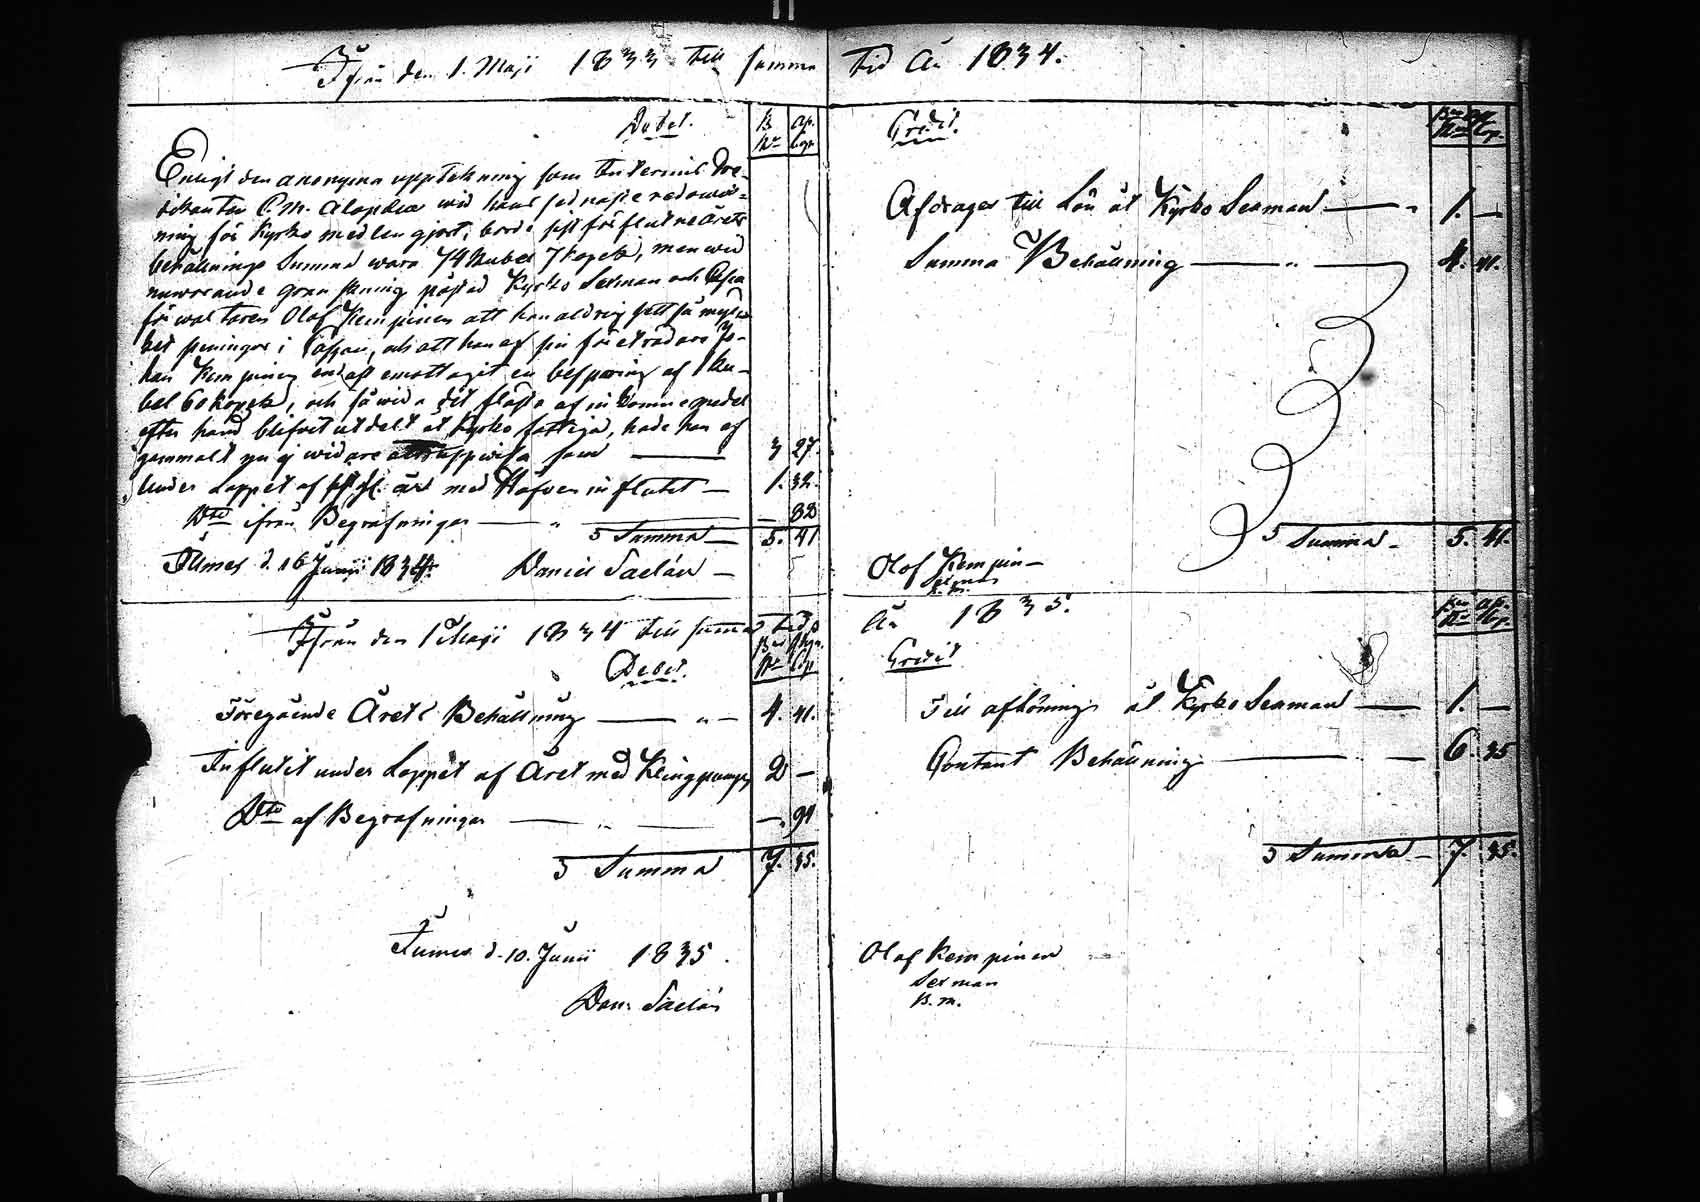 Ifrån den 1. Maji 1833 till samma tid År 1834.
Debet.
Enligt den anonyma uppteckning som Interims Pre-
dikanten C. M. Alopæus wid haus sednaste redowis-
ning för Kyrko medlen gjort, borde sist förflutne årets
behållnings Summa wara 74 Rubel 7 kopek, men wid
nuwarande granskning påstod Kyrko Sexman och Cassa
förwaltaren Olof Kempinen att han aldrig sett så myc-
ket peningar i Cassan, och att han af sin företrädare Jo-
han Kempinen endast emottagit en besparing af 1 Ru-
bel 60 Kopek, och såwida det mesta af inkomne medel
efter hand blifwit utdelt åt Kyrko fattiga, hade han af
gammalt nu ej widare att uppwisa än 3 27.
Under Loppet af sistl. året med Håfven influtit — 1. 32.
Dito ifrån Begrafningar — " — — 82
S Summa — 5. 41
Tumes d. 16 Junii 1834. Daniel Saclén —
Credit.
Afdrages till Lön åt Kyrko Sexman — " 1. —
Summa Behållning — " — 4. 41.
S Summa — 5. 41.
Olof Kempin—
Sexman
B. M.
Ifrån den 1 Maji 1834 till samma tid på
År 1835.
Debet.
Föregående Årets Behållning — " — 4. 41.
Influtit under Loppet af Året med Klingpungen 2 —
Dito af Begrafningar — " — —. 94
S Summa 7. 35.
Tumes d. 10. Junii 1835.
Dan: Saclén
Credit
Till aflöning åt Kyrko Sexman — 1. —
Contant Behållning — " — 6. 35
S Summa — 7. 35.
Olof Kempinen
Sexman
B. M.